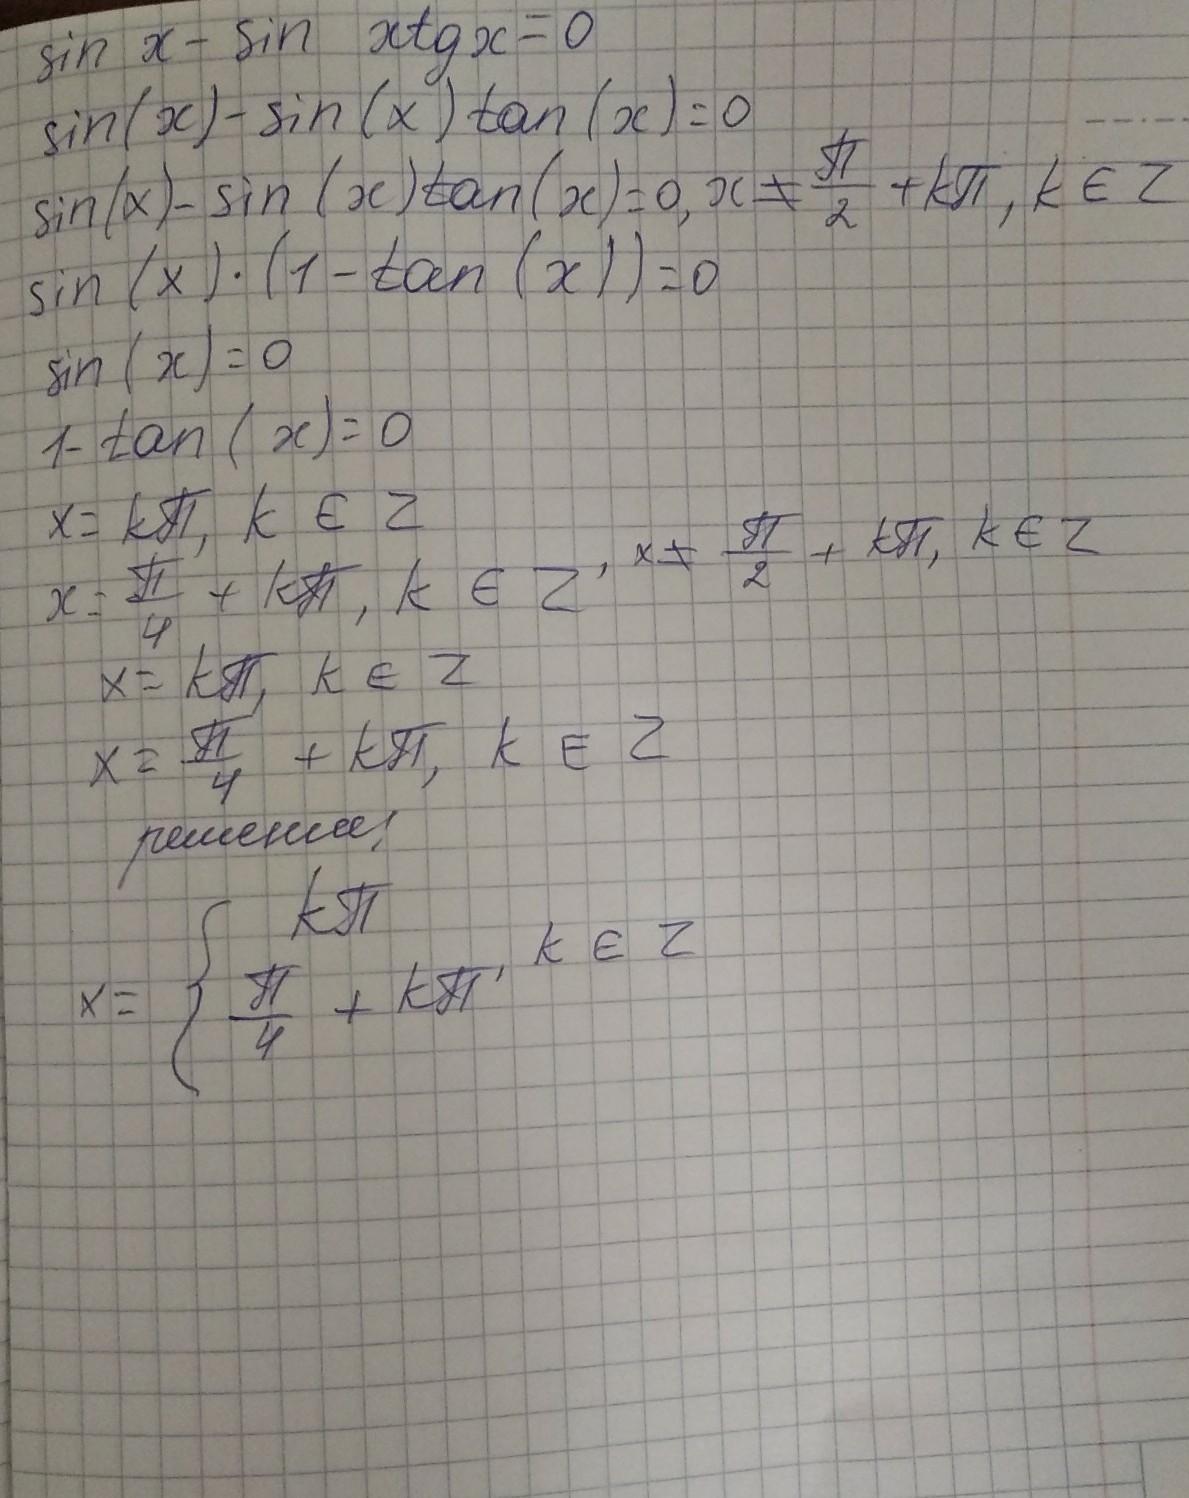 sin x - sin xtgx = 0
sin(x) - sin(x) tan(x) = 0
sin(x) - sin(x) tan(x) = 0, x ≠ π/2 + kπ, k ∈ Z
sin(x) · (1 - tan(x)) = 0
sin(x) = 0
1 - tan(x) = 0
x = kπ, k ∈ Z
x = π/4 + kπ, k ∈ Z, x ≠ π/2 + kπ, k ∈ Z
x = kπ, k ∈ Z
x = π/4 + kπ, k ∈ Z
решение:
x = { kπ
π/4 + kπ, k ∈ Z